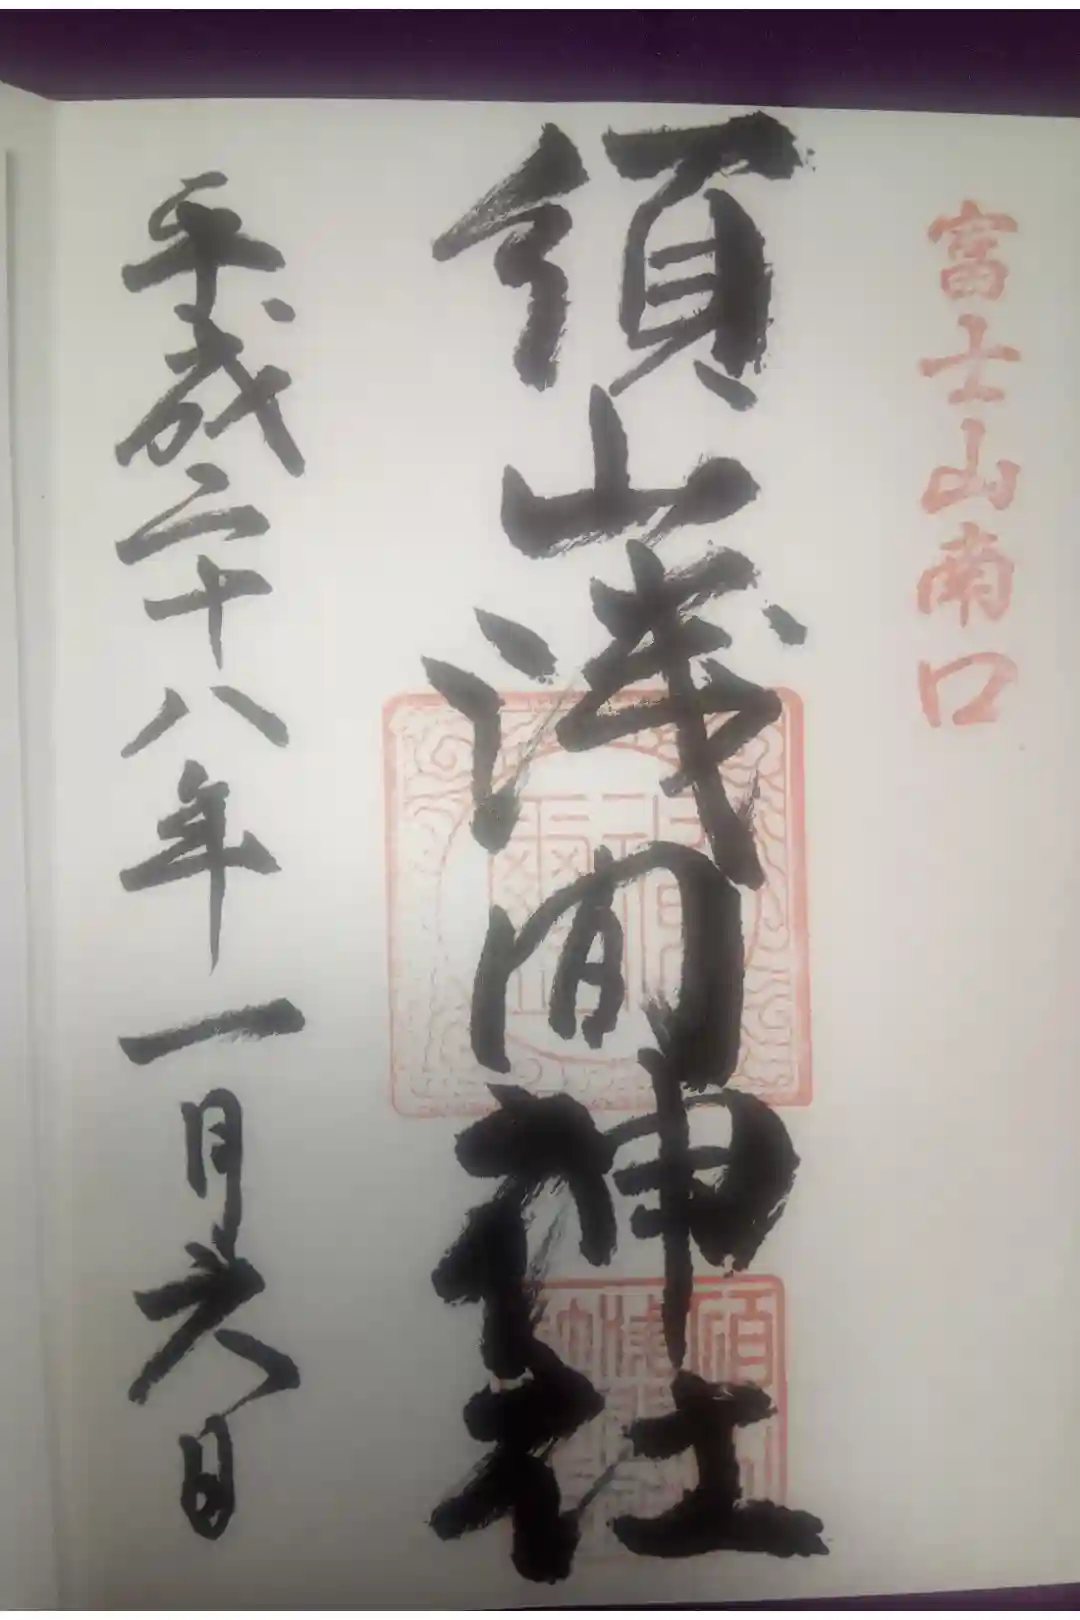 富士山南口
須山浅間神社
平成二十八年一月六日